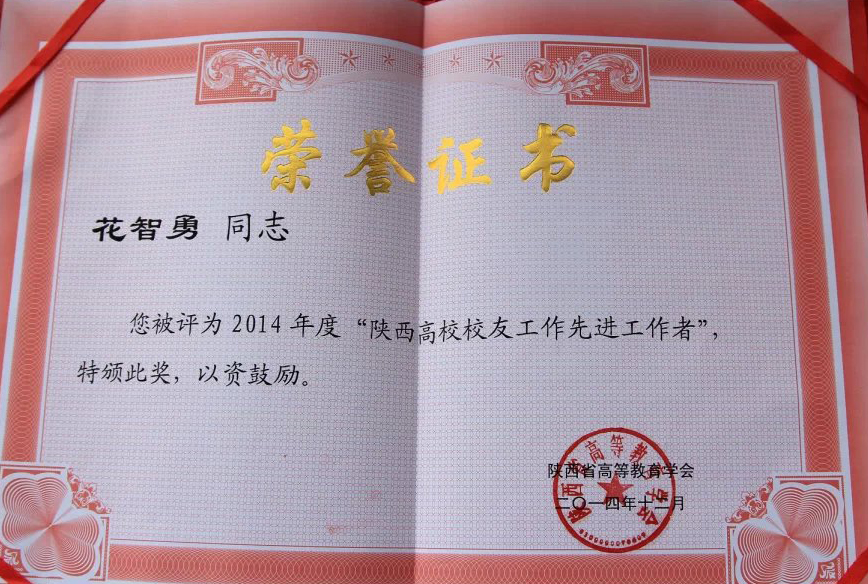 荣誉证书
花智勇 同志
您被评为 2014 年度 “陕西高校校友工作先进工作者”，
特颁此奖，以资鼓励。
陕西省高等教育学会
二〇一四年十二月
陕西省高等教育学会